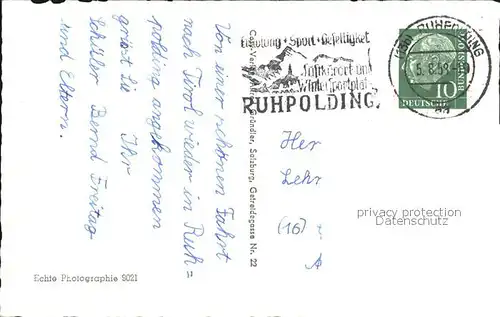 Von einer schönen Fahrt
nach Tirol wieder in Ruh=
polding angekommen
grüst Sie Ihr
Schüler Bernd Freitag
und Eltern.
Echte Photographie 9021
Salzburg, Getreidegasse Nr. 22
Erholung + Sport + Geselligkeit
Luftkurort und
Wintersportplatz
RUHPOLDING
RUHPOLDING
5.8.59
10
DEUTSCHE
BUNDESPOST
Her
Lehr
(16)
privacy protection
Datenschutz